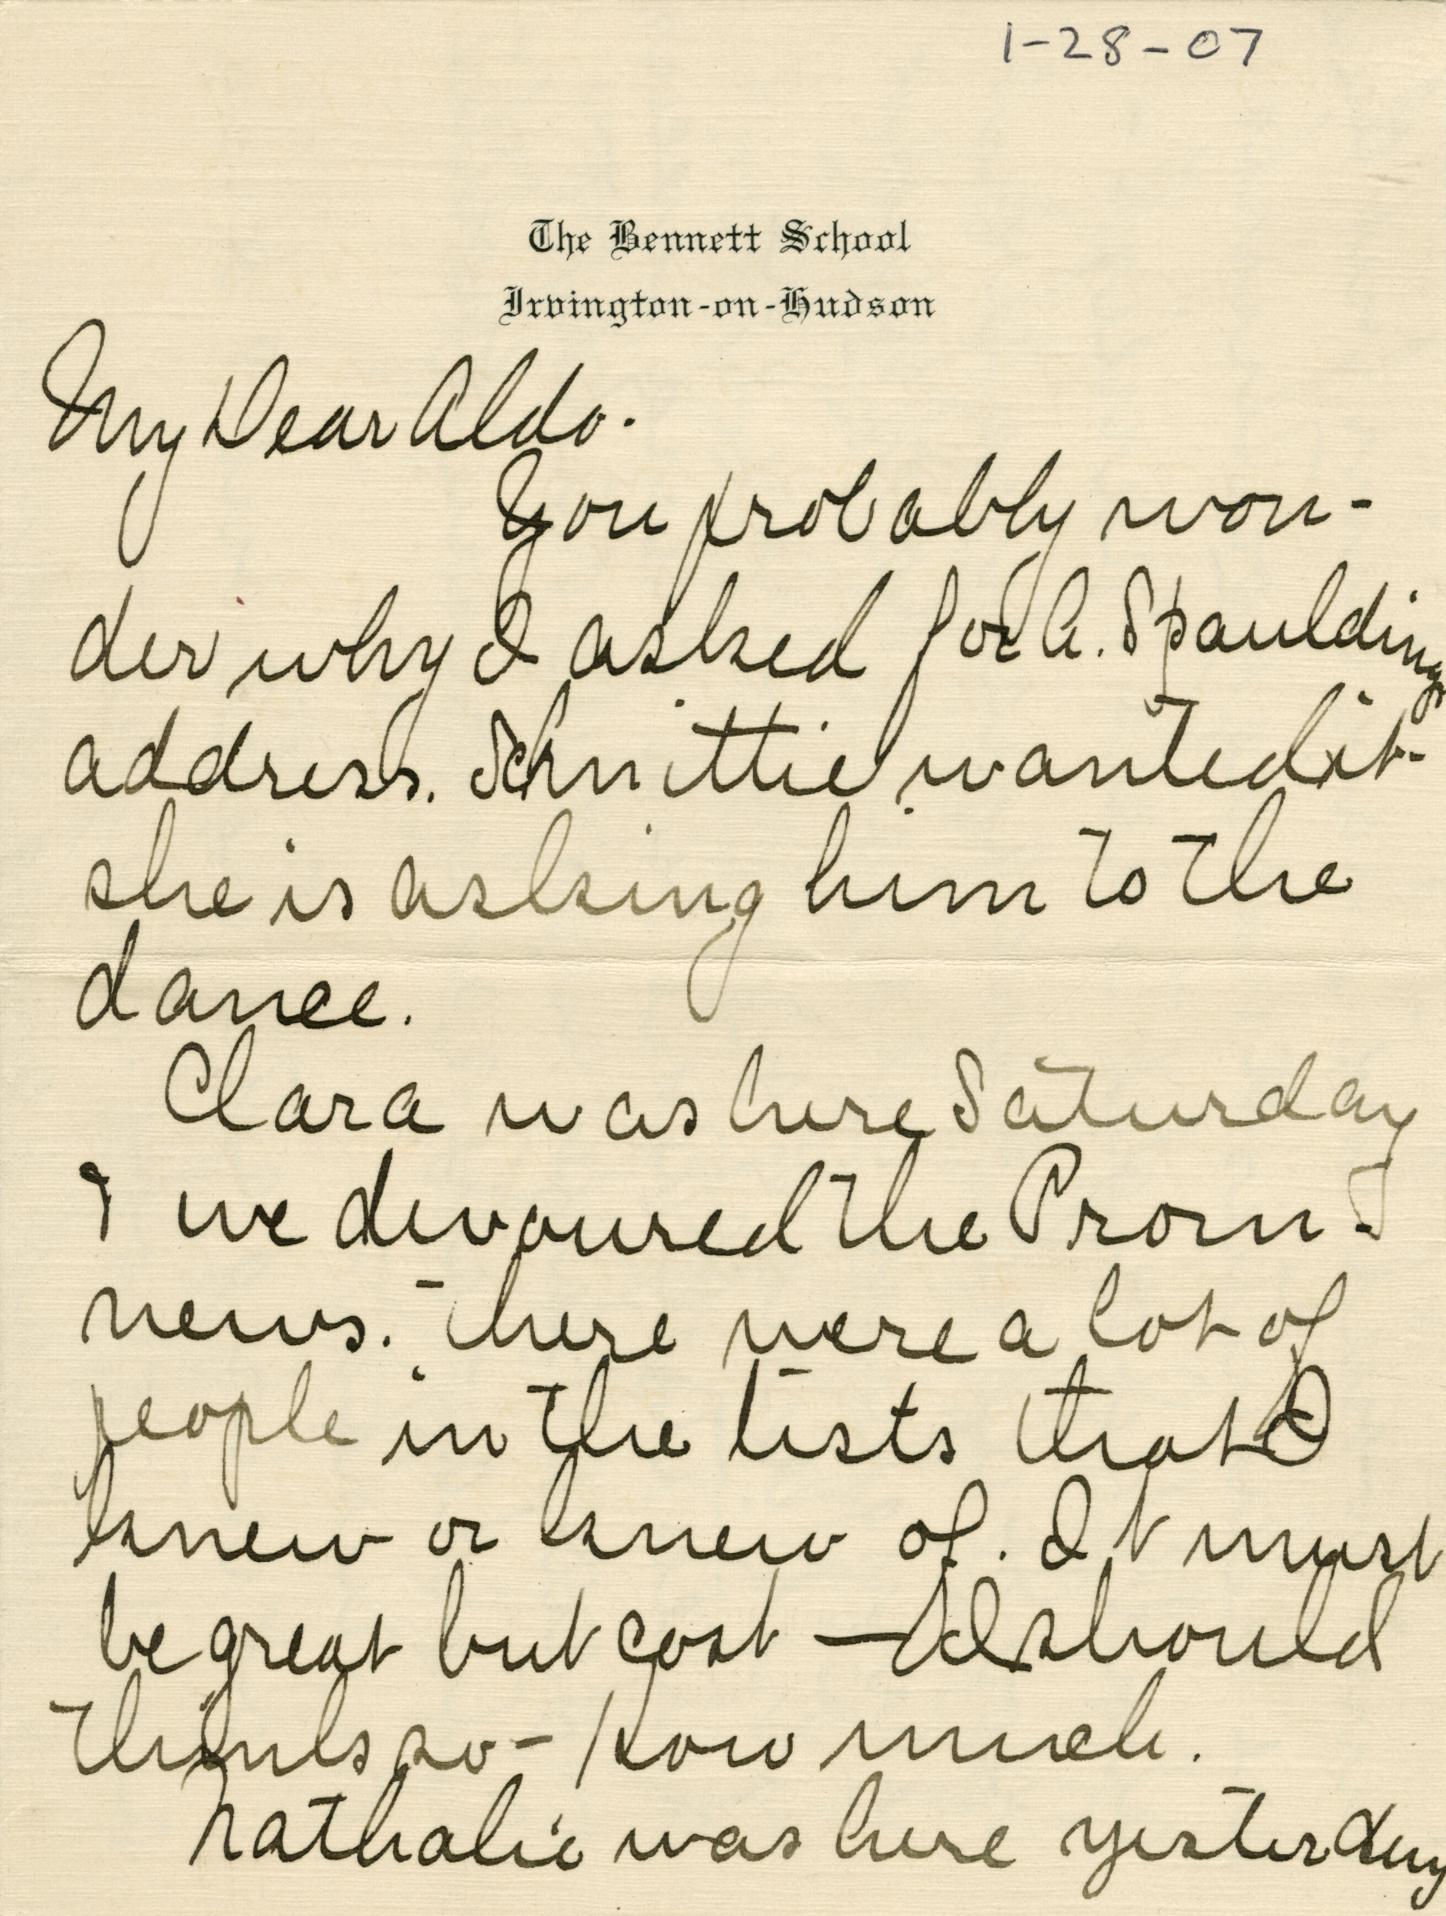 1-28-07
The Bennett School
Irvington-on-Hudson
My Dear Aldo.
You probably won-
der why I asked for A. Spauldings
address. Schmittie wanted it-
she is asking him to the
dance.
Clara was here Saturday
& we devoured the Prom
news. There were a lot of
people in the lists that I
knew or knew of. It must
be great but cost — I should
think so - How much.
Nathalie was here yesterday